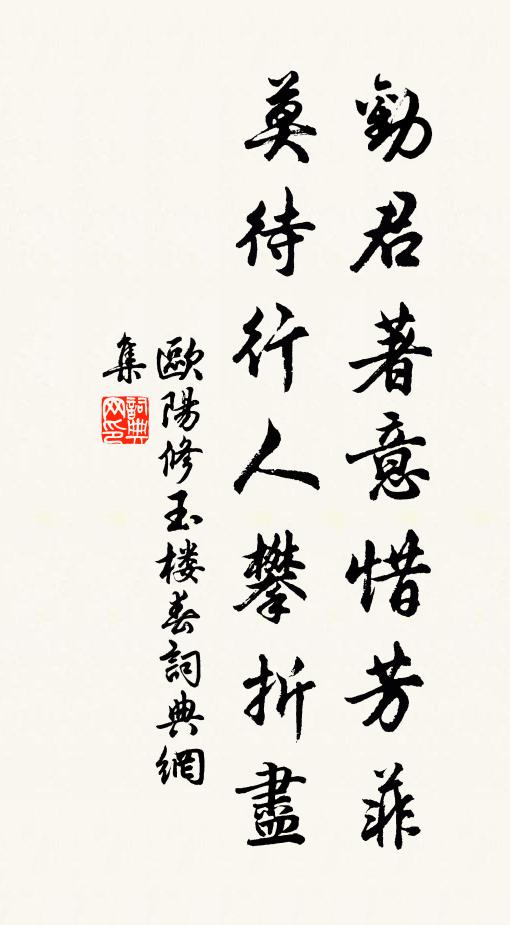 勸君著意惜芳菲
莫待行人攀折盡
歐陽修玉楼春詞典網
集
詞典
网印